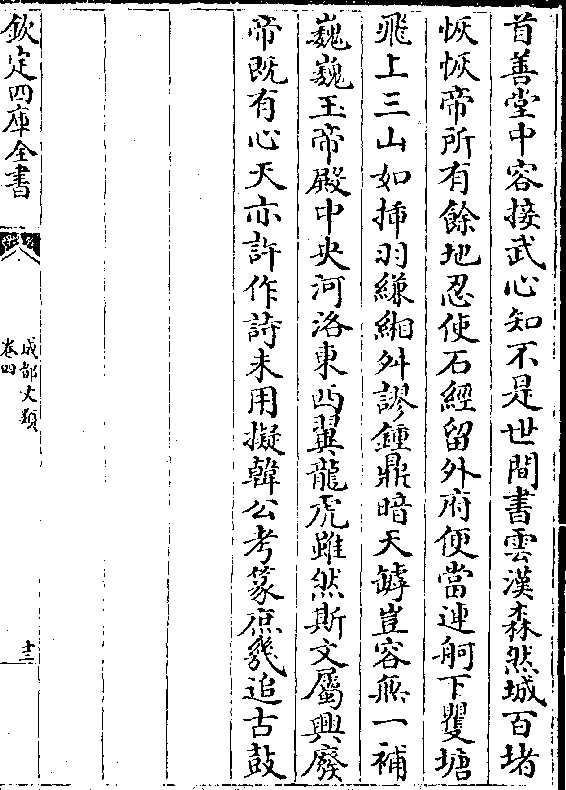 首善堂中容接武心知不是世間書雲漢森然城百堵
恢恢帝所有餘地忍使石經留外府便當連舸下瞿塘
飛上三山如揷羽縑緗舛謬鍾鼎暗天罅豈容無一補
巍巍玉帝殿中央河洛東西翼龍虎雖然斯文屬興廢
帝既有心天亦許作詩未用擬韓公考篆庶幾追古鼓
欽定四庫全書
成都文類
卷四